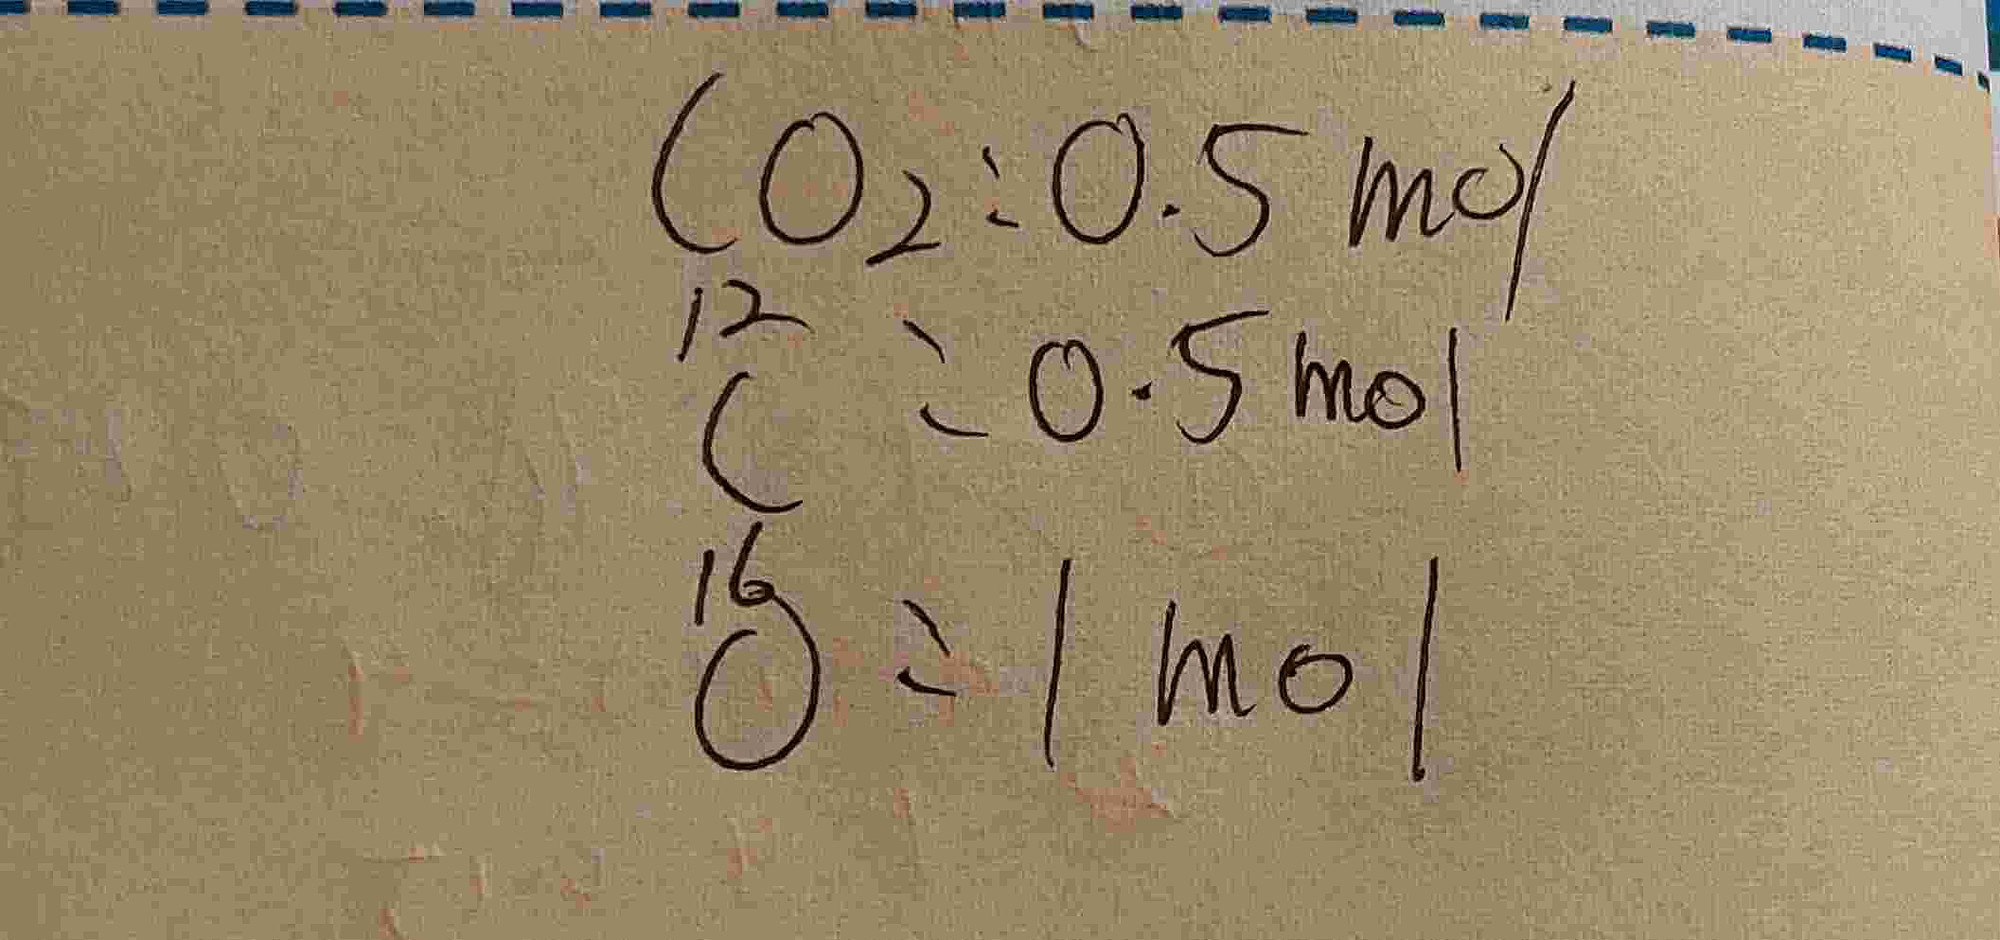 CO₂: 0.5 mol
12
C : 0.5 mol
16
O : 1 mol